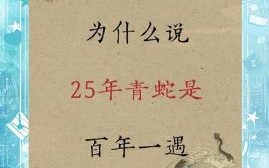 为什么说
25年青蛇是
百年一遇